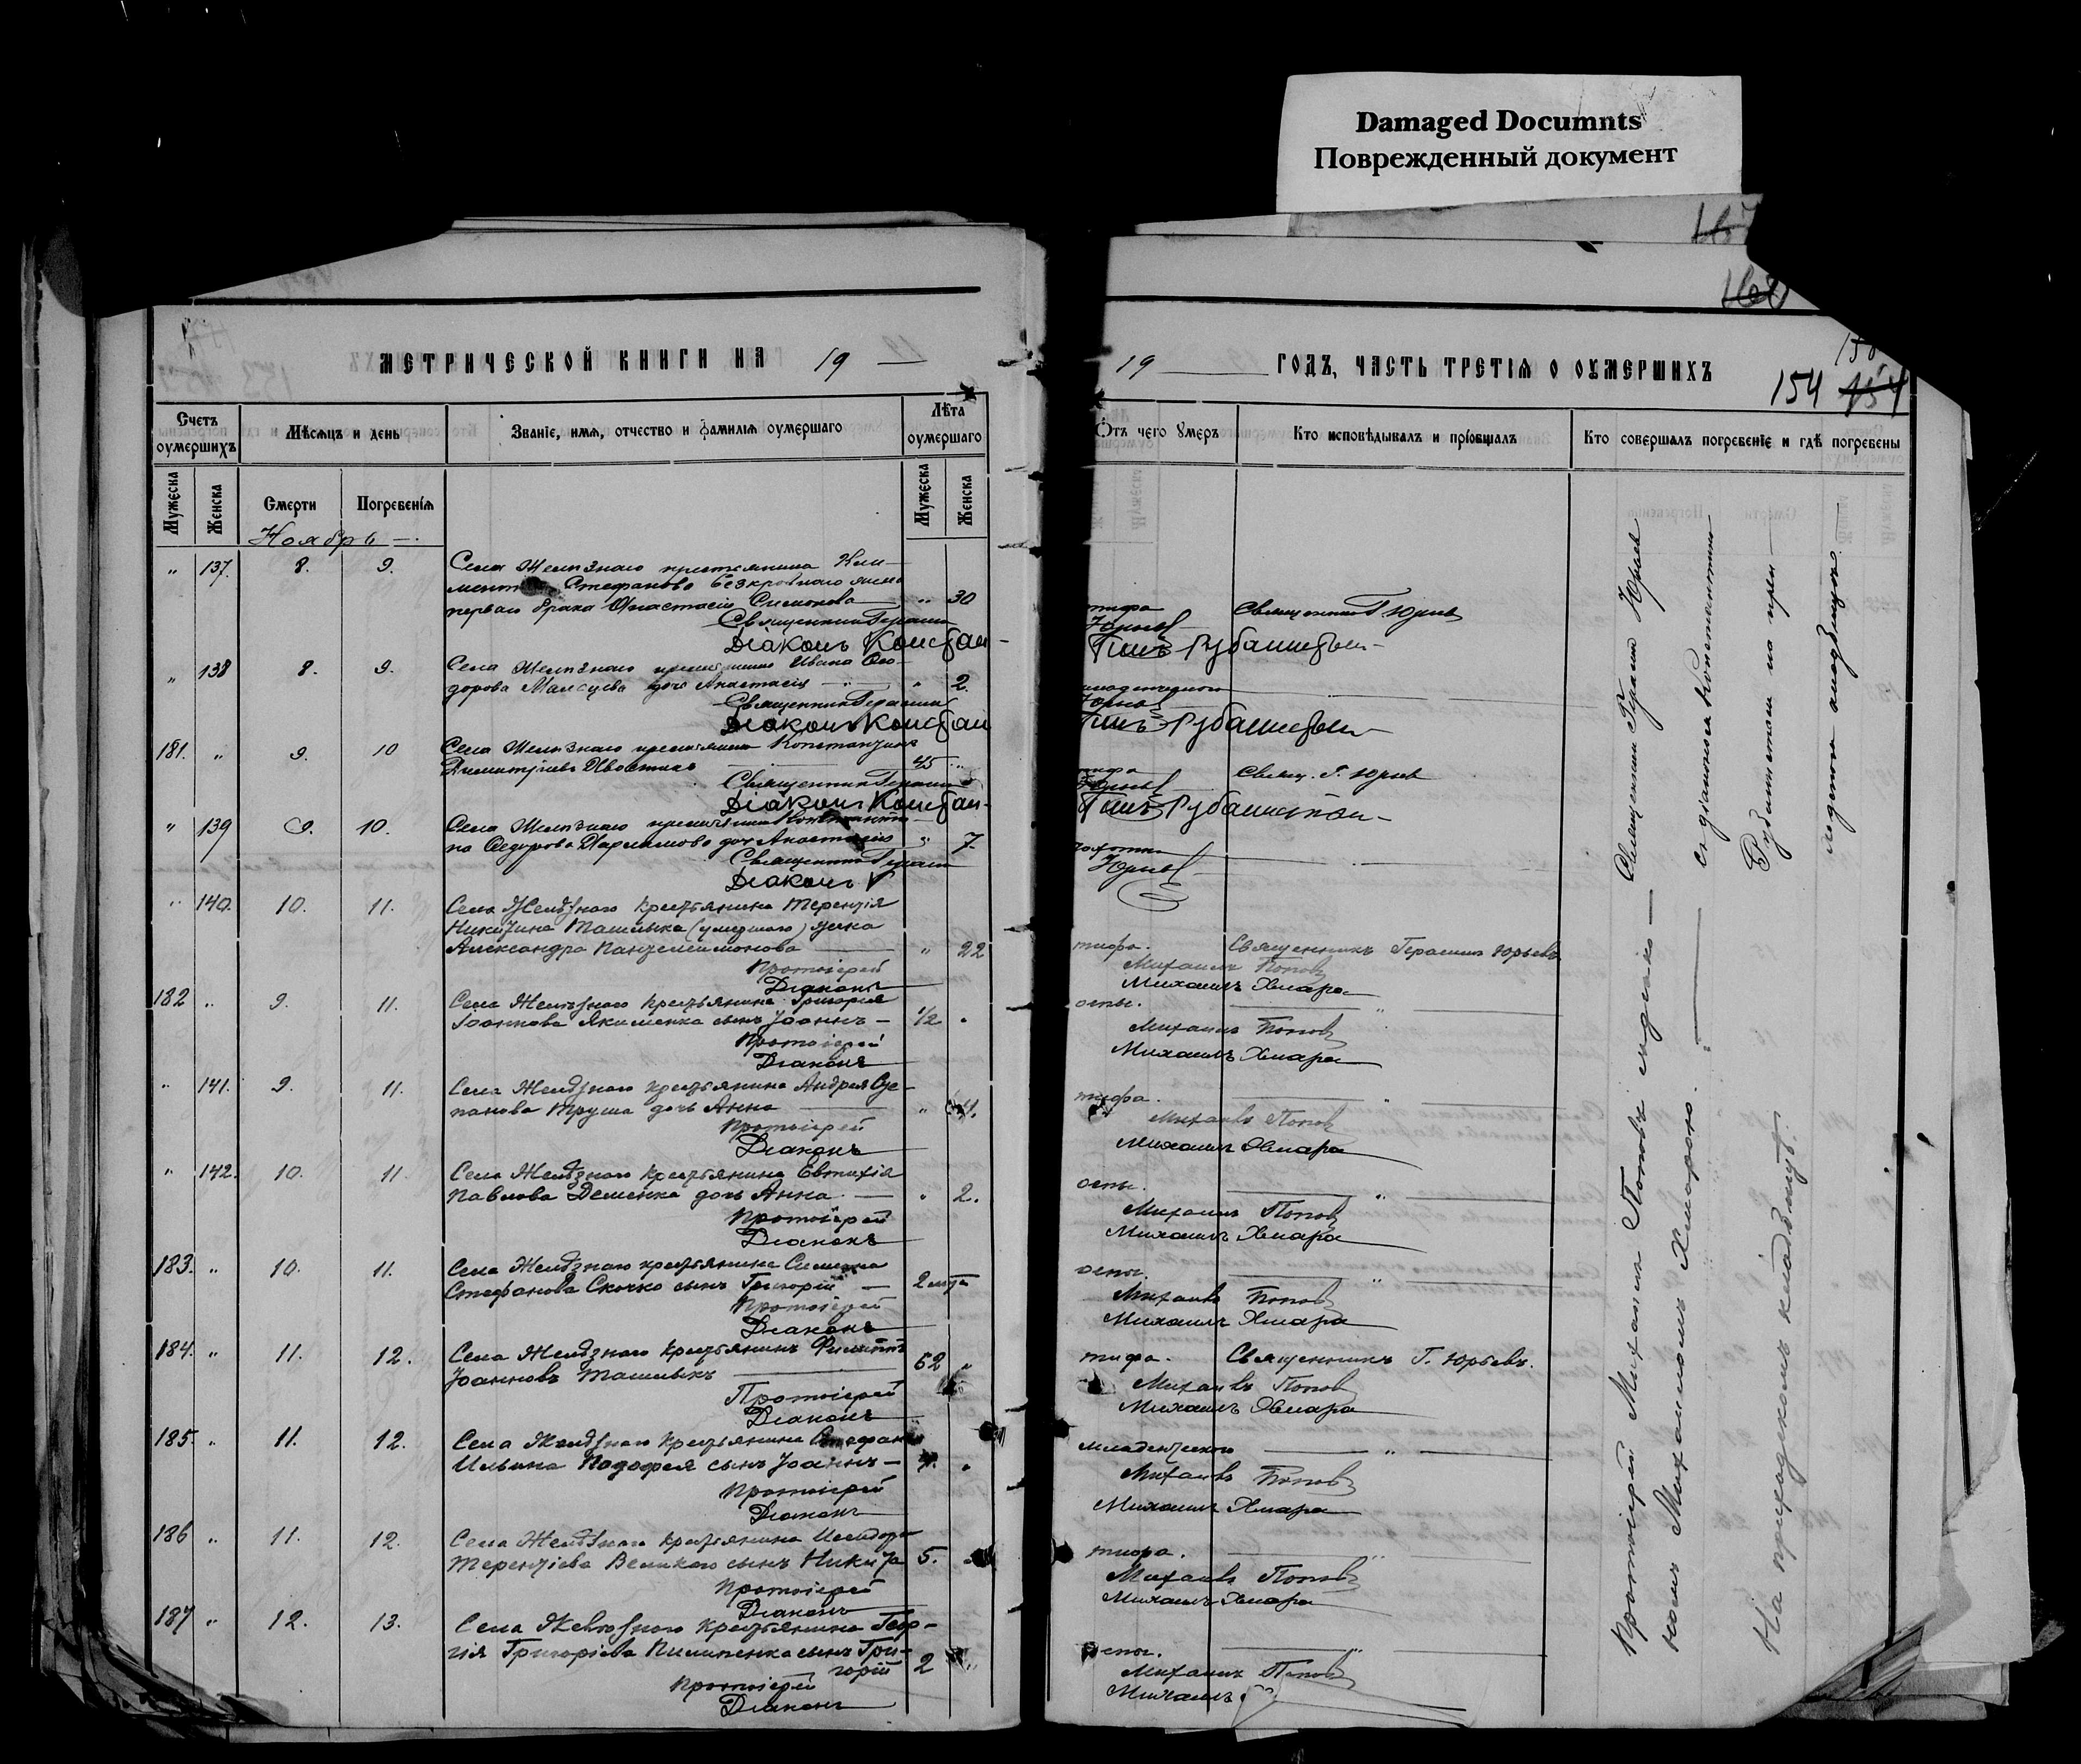 Damaged Documnts
Поврежденный документ
МЕТРИЧЕСКОЙ КНИГИ НА 19 —
19 — ГОДЪ, ЧАСТЬ ТРЕТІЯ О ОУМЕРШИХЪ
154 154
Счетъ оумершихъ
Мѣсяцъ и день
Званіе, имя, отчество и фамилія оумершаго
Лѣта оумершаго
Отъ чего умеръ
Кто исповѣдывалъ и пріобщалъ
Кто совершалъ погребеніе и гдѣ погребены
Мужеска
Женска
Смерти
Погребенія
Мужеска
Женска
Ноябрь —.
" 137. 8. 9. Села Желѣзнаго крестьянина Кли-
Стефанова Безкровнаго жена
перваго брака Анастасія Симонова " 30
тифа Священникъ Г. Юрьев
Священник Герасим Юрьев
Діаконъ Констан-тинъ Рубашистый
" 138 8. 9. Села Желѣзнаго крестьянина Ивана Ѳео-
дорова дочь Анастасія — " 2.
младенческаго
Священник Герасим Юрьев
Діаконъ Констан-тинъ Рубашистый
181. " 9. 10 Села Желѣзнаго крестьянина Константинъ
Димитріевъ 45 "
тифа Священ. Г. Юрьев
Священник Герасим Юрьев
Діаконъ Констан-тинъ Рубашистый
" 139 9. 10. Села Желѣзнаго крестьянина
Ѳедорова дочь Анастасія " 7.
чахотки
Священник Герасим Юрьев
Діаконъ
" 140. 10. 11. Села Желѣзнаго крестьянина Терентія
Никитина Ташлыка (умершаго) жена
Александра Пантелеимонова — " 22
тифа. Священникъ Герасимъ Юрьевъ
Протоіерей Михаилъ Попов
Діаконъ Михаилъ Хмара
182 " 9. 11. Села Желѣзнаго крестьянина Григорія
Іоаннова Якименка сынъ Іоаннъ — 1/2 "
оспы. — " —
Протоіерей Михаилъ Попов
Діаконъ Михаилъ Хмара
" 141. 9. 11. Села Желѣзнаго крестьянина Андрея Сте-
панова Труша дочь Анна — " 4.
тифа. — " —
Протоіерей Михаилъ Попов
Діаконъ Михаилъ Хмара
" 142. 10. 11 Села Желѣзнаго крестьянина Евтихія
Павлова Деменка дочь Анна. — " 2.
оспы. — " —
Протоіерей Михаилъ Попов
Діаконъ Михаилъ Хмара
183. " 10. 11. Села Желѣзнаго крестьянина Симеона
Стефанова Скочко сынъ Григорій — 2
оспы. — " —
Протоіерей Михаилъ Попов
Діаконъ Михаилъ Хмара
184. " 11. 12. Села Желѣзнаго крестьянинъ Филиппъ
Іоанновъ Ташлыкъ — 52 "
тифа. Священникъ Г. Юрьевъ.
Протоіерей Михаилъ Попов
Діаконъ Михаилъ Хмара
185. " 11. 12. Села Желѣзнаго крестьянина Стефана
Ильина сынъ Іоаннъ — "
младенческаго — " —
Протоіерей Михаилъ Попов
Діаконъ Михаилъ Хмара
186 " 11. 12. Села Желѣзнаго крестьянина Исидора
Терентіева Великаго сынъ Никита 5.
тифа. — " —
Протоіерей Михаилъ Попов
Діаконъ Михаилъ Хмара
187 " 12. 13. Села Желѣзнаго крестьянина Геор-
гія Григоріева Пилипенка сынъ Гри-
горій 2 "
оспы. — " —
Протоіерей Михаилъ Попов
Діаконъ Михаилъ
Протоіерей Михаилъ Поповъ съ діако-
номъ Михаиломъ Хмарою.
На приходскомъ кладбищѣ.
Священник Герасим Юрьев
съ діакономъ Константиномъ
на при-
ходскомъ кладбищѣ.